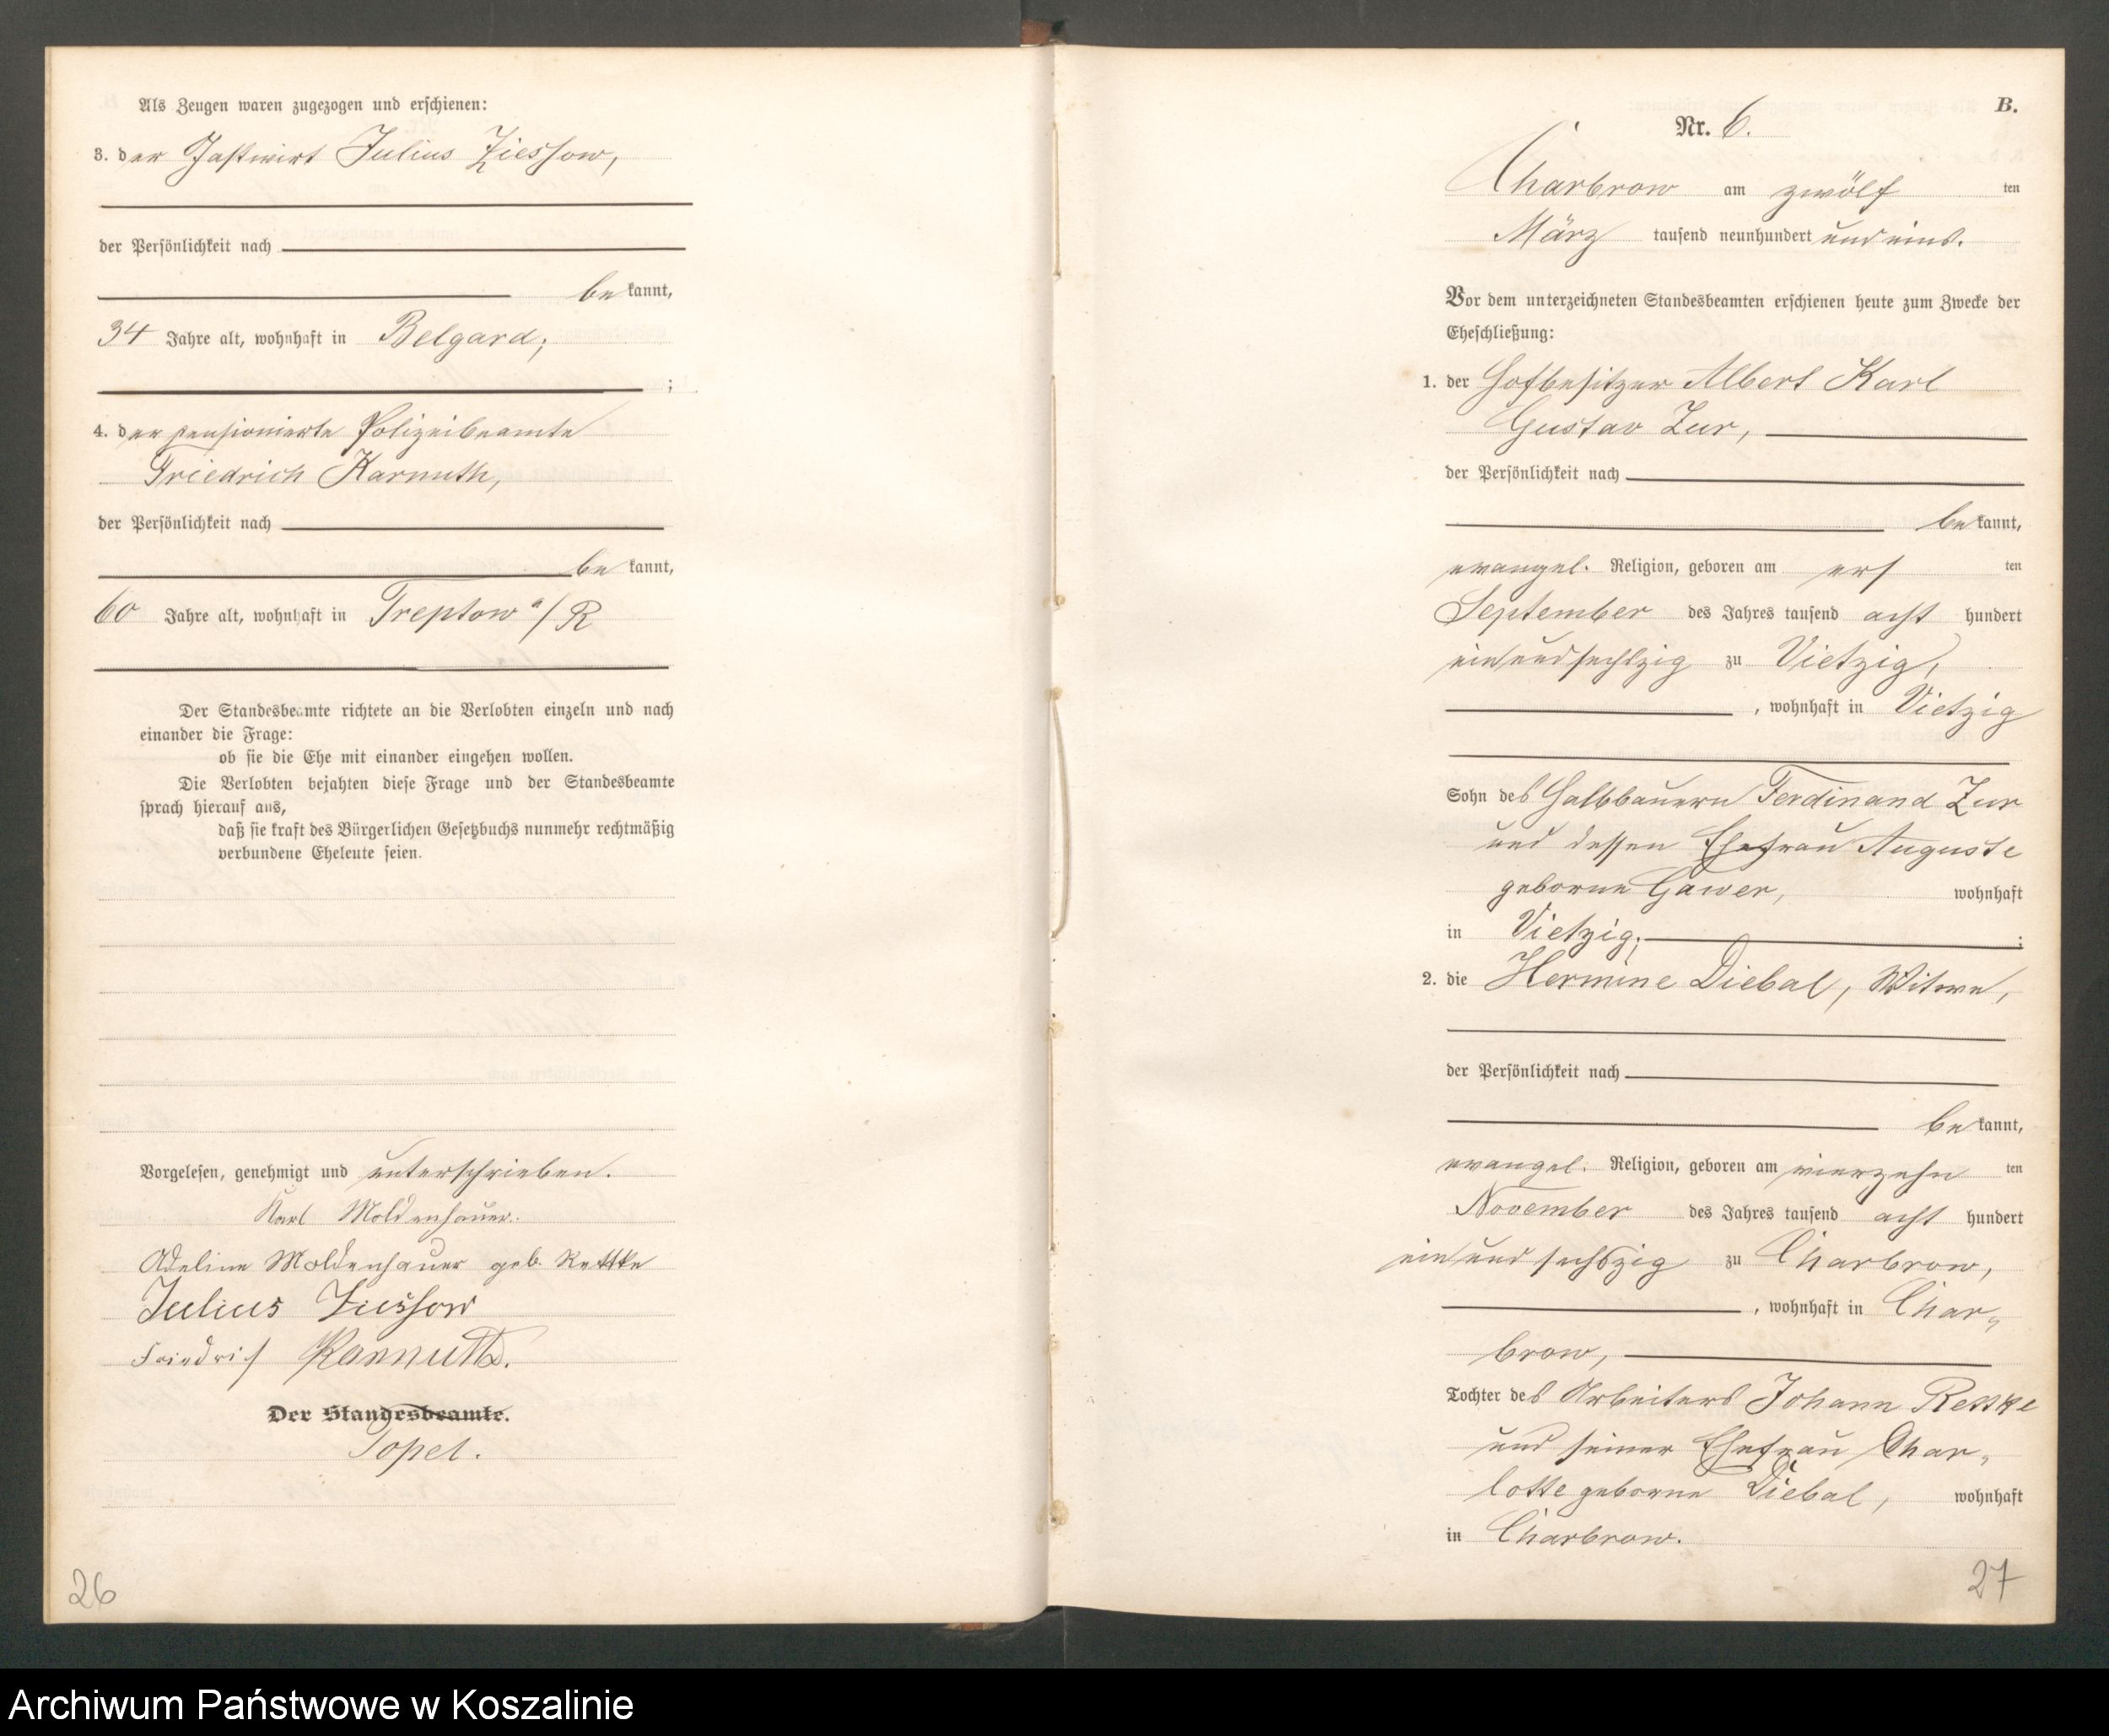 Als Zeugen waren zugezogen und erschienen:
3. der Gastwirt Julius Ziessow,
der Persönlichkeit nach
bekannt,
34 Jahre alt, wohnhaft in Belgard,
;
4. der pensionierte Polizeibeamte
Friedrich Karnuth,
der Persönlichkeit nach
bekannt,
60 Jahre alt, wohnhaft in Treptow a/R
Der Standesbeamte richtete an die Verlobten einzeln und nach
einander die Frage:
ob sie die Ehe mit einander eingehen wollen.
Die Verlobten bejahten diese Frage und der Standesbeamte
sprach hierauf aus,
daß sie kraft des Bürgerlichen Gesetzbuchs nunmehr rechtmäßig
verbundene Eheleute seien.
Vorgelesen, genehmigt und unterschrieben.
Karl Moldenhauer.
Adeline Moldenhauer geb. Rettke
Julius Ziessow
Friedrich Karnuth.
Der Standesbeamte.
Topel.
26
B.
Nr. 6.
Charbrow am zwölften
März tausend neunhundert und eins.
Vor dem unterzeichneten Standesbeamten erschienen heute zum Zwecke der
Eheschließung:
1. der Hofbesitzer Albert Karl
Gustav Zur,
der Persönlichkeit nach
bekannt,
evangel. Religion, geboren am ersten
September des Jahres tausend acht hundert
einundsechszig zu Vietzig,
, wohnhaft in Vietzig
Sohn des Halbbauern Ferdinand Zur
und dessen Ehefrau Auguste
geborne Gawer, wohnhaft
in Vietzig; ;
2. die Hermine Diebal, Witwe,
der Persönlichkeit nach
bekannt,
evangel. Religion, geboren am vierzehnten
November des Jahres tausend acht hundert
einundsechszig zu Charbrow,
, wohnhaft in Char-
brow,
Tochter des Arbeiters Johann Retzke
und seiner Ehefrau Char-
lotte geborne Diebal, wohnhaft
in Charbrow.
27
Archiwum Państwowe w Koszalinie